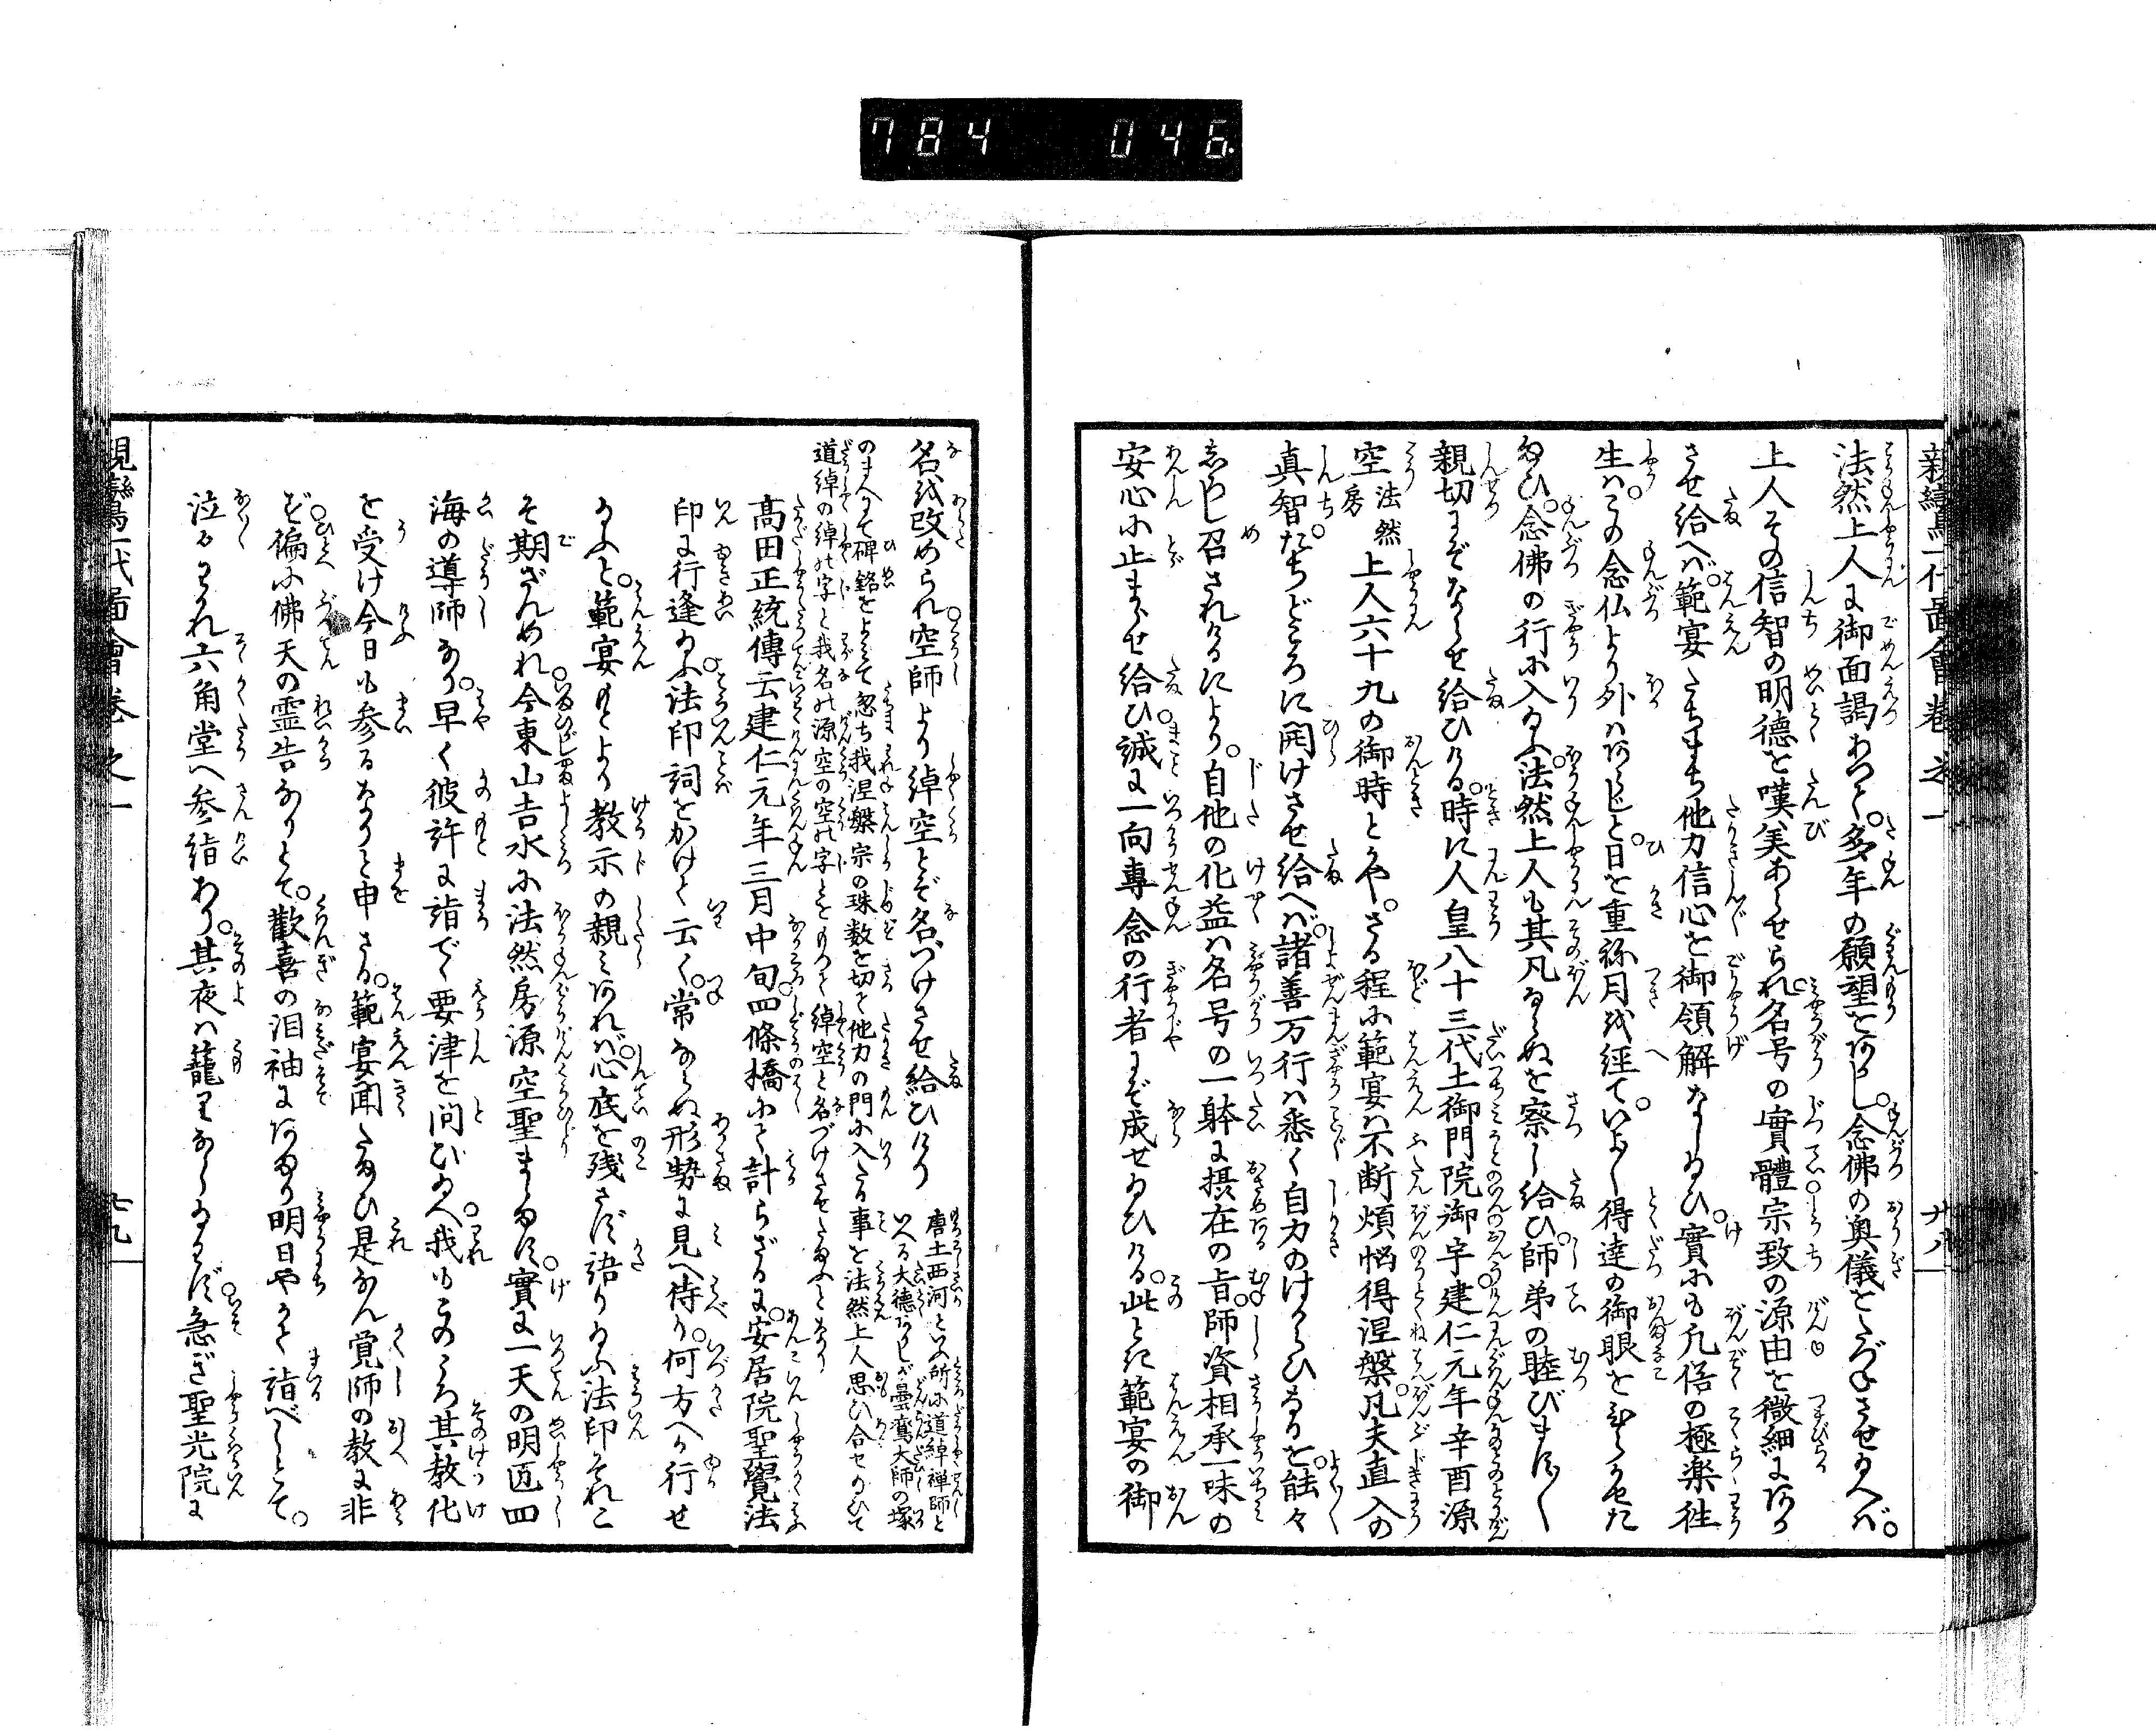 784 046
親鸞一代啚會巻之一 廿八
法然上人に御面謁ありて。多年の願望をあらはし。念佛の奥儀をたづねさせ給へば。
上人その信智の明徳を嘆美あらせられ。名号の實體宗致の源由を微細にあり
させ給へば。範宴たちまち他力信心を御領解なし給ひ。實にも凡俗の極楽徃
生は。この念仏より外はあらじと。日を重ね月を經て。いよ〳〵得達の御眼をひらかせた
まひ。念佛の行に入給ふ。法然上人も其凡ならぬを察し給ひ。師弟の睦びます〳〵
親切にぞならせ給ひける。時に人皇八十三代土御門院御宇。建仁元年辛酉源
空法然房上人六十九の御時とかや。さる程に範宴は不断煩悩得涅槃。凡夫直入の
真智。たちどころに開けさせ給へば。諸善万行は悉く自力のはからひなるを。能々
志ろし召されけるにより。自他の化益は名号の一躰に摂在の旨。師資相承一味の
安心に止まらせ給ひ。誠に一向専念の行者にぞ成せ給ひける。此とき範宴の御
名を改められ。空師より綽空とぞ名づけさせ給ひけり
唐土西河といふ所に道綽禅師と
いへる大徳ありしが曇鸞大師の塚
のまへにて碑銘をよみて忽ち我涅槃宗の珠数を切て他力の門に入たる事を法然上人思ひ合せ給ひて
道綽の綽の字と我名の源空の空の字とをもつて綽空と名づけさせたまふとなり
髙田正統傳云建仁元年三月中旬。四條橋にて計らざるに。安居院聖覺法
印に行逢給ふ。法印詞をかけて云く。常ならぬ形勢に見へ侍り。何方へか行せ
給ふと。範宴もとより教示の親みあれば。心底を残さず語り給ふ法印それこ
そ期ざんめれ。今東山吉水に法然房源空聖ましますは。實に一天の明匠四
海の導師なり。早く彼許に詣で〻要津を問ひ給へ。我もこのころ其教化
を受け今日も参るなりと申さる。範宴聞たまひ是なん覚師の教に非
ず。偏に佛天の霊告なりとて。歡喜の泪袖にあまり明日やがて詣べしとて。
泣々わかれ六角堂へ参詣あり。其夜は籠りましまさず。急ぎ聖光院に
親鸞一代啚會巻之一 廿九